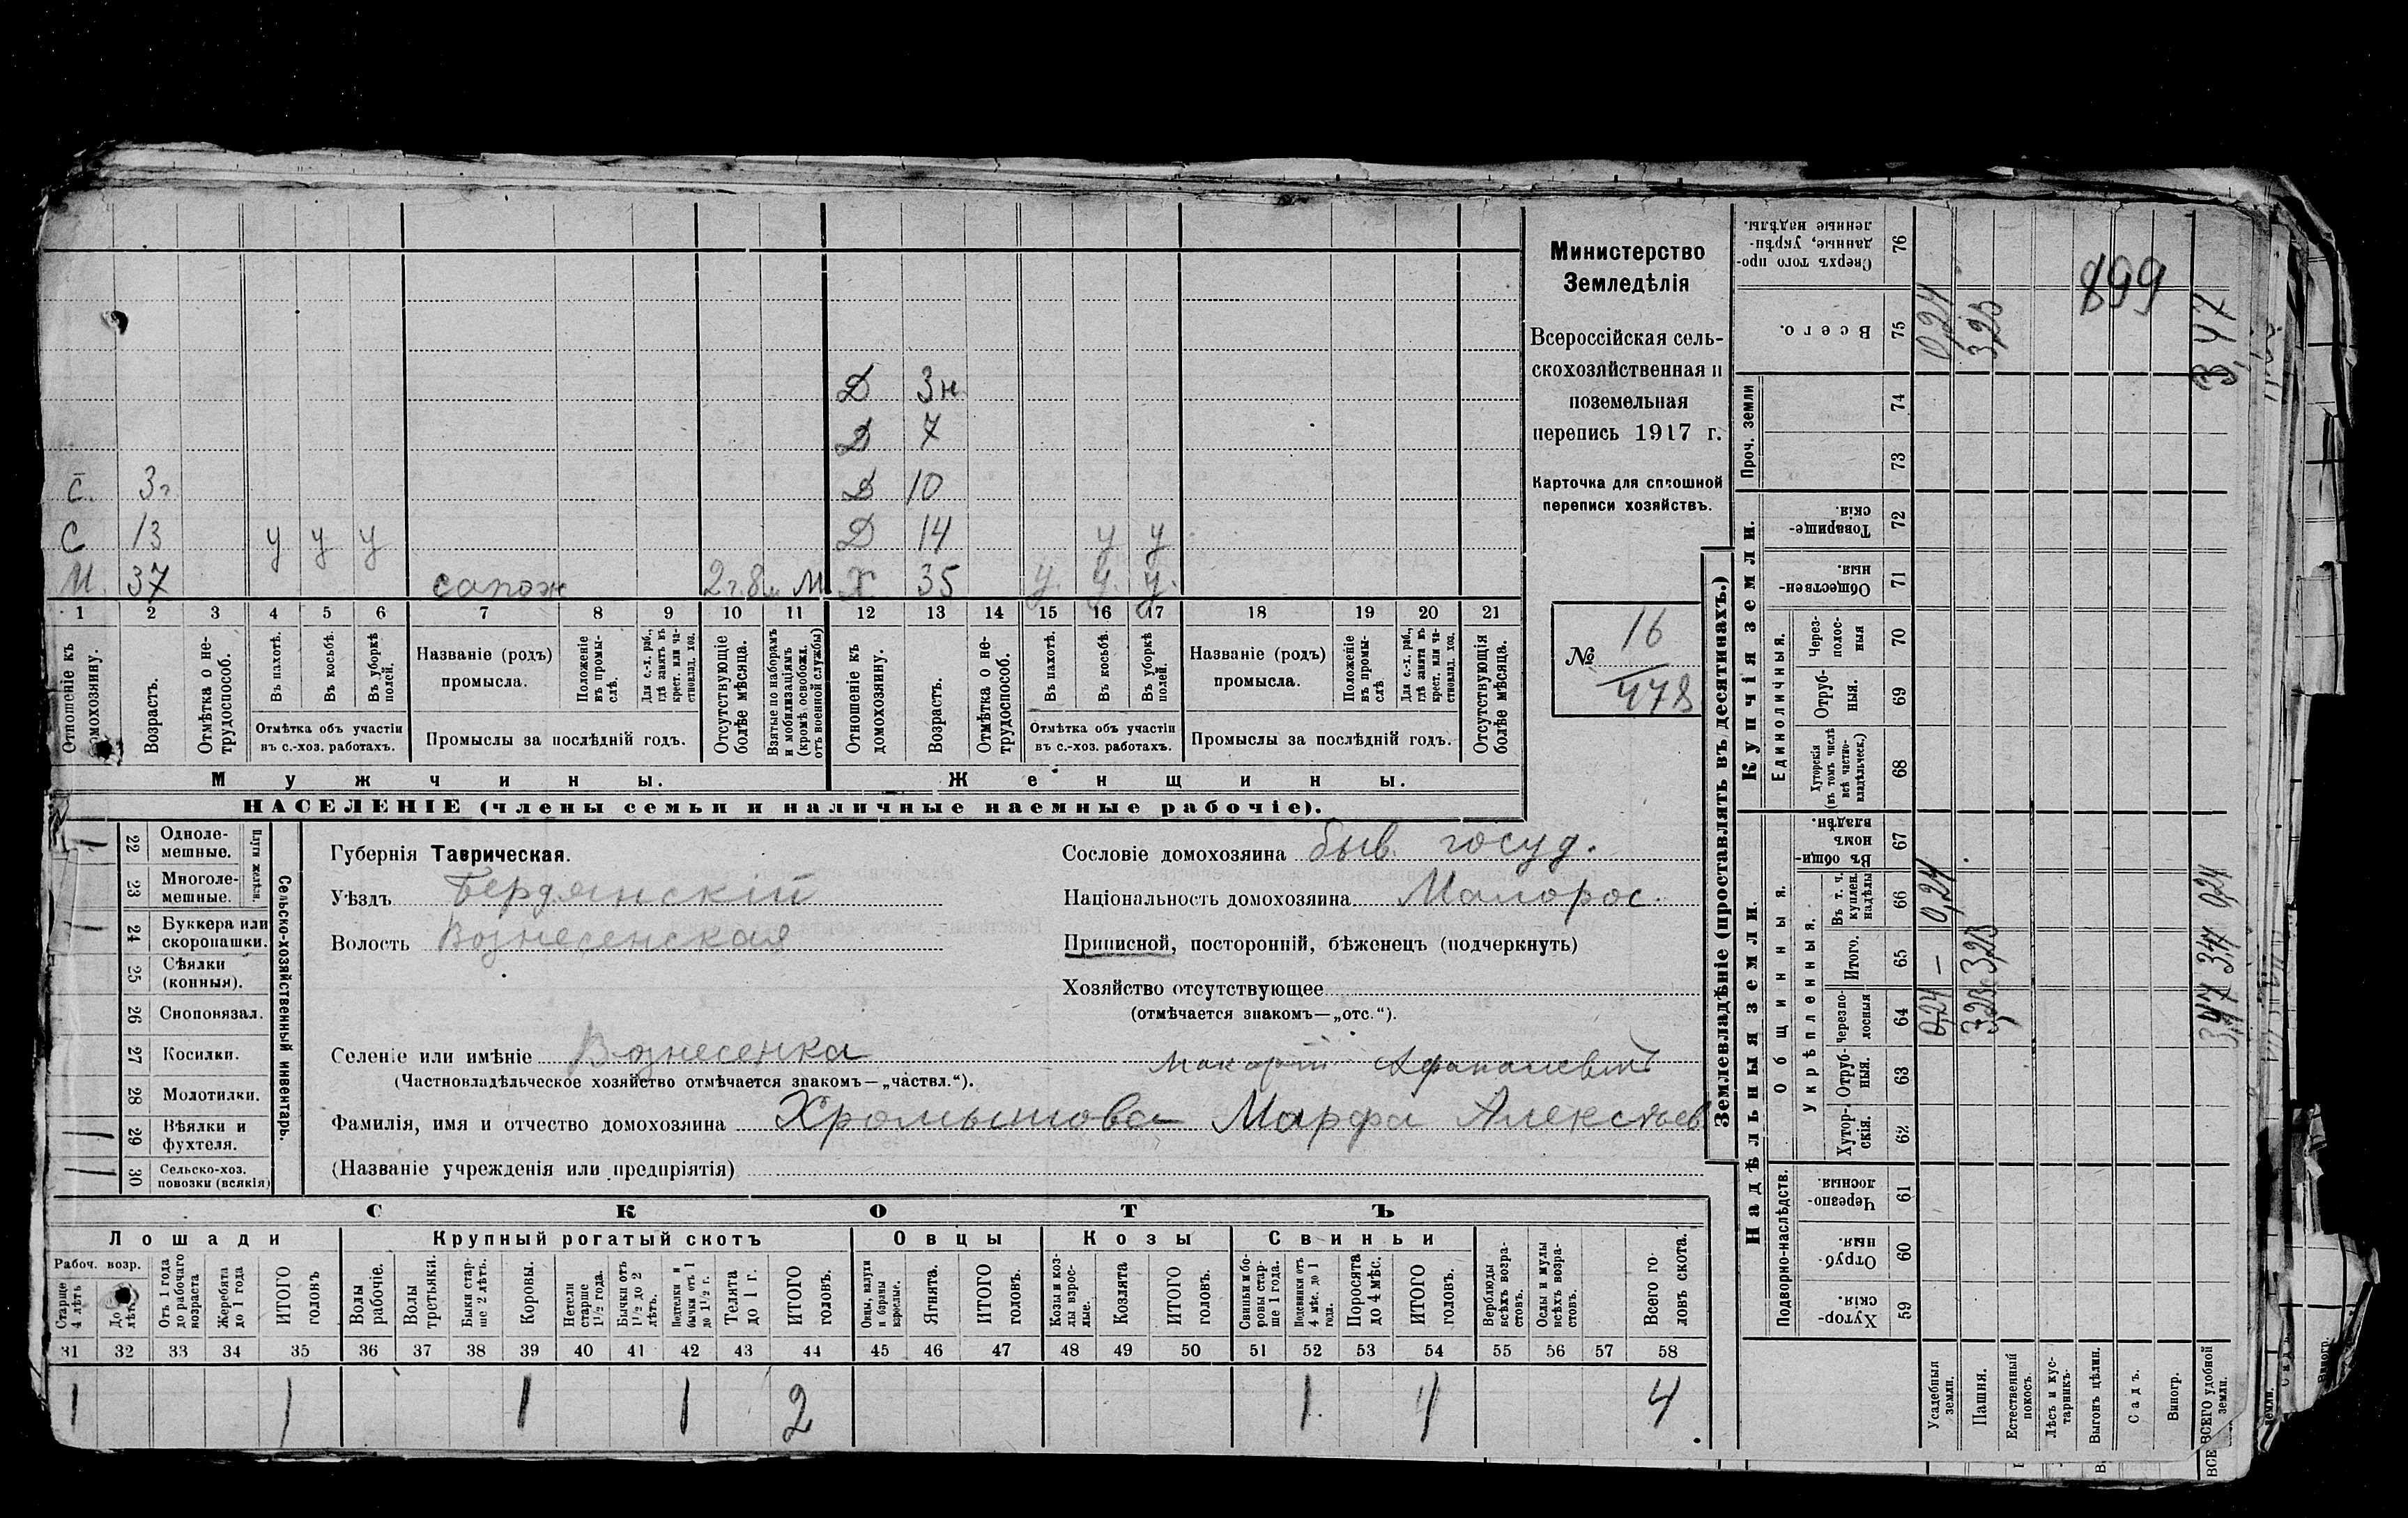 Министерство
Земледѣлія
Всероссійская сель-
скохозяйственная и
поземельная
перепись 1917 г.
Карточка для сплошной
переписи хозяйствъ.
№ 16
478
899
Д 3н
Д 7
С. 3г Д 10
С 13 у у у Д 14 у у
М. 37 сапож 2г.8м М Х 35 у. у. у.
1 2 3 4 5 6 7 8 9 10 11 12 13 14 15 16 17 18 19 20 21
Отношеніе къ домохозяину.
Возрастъ.
Отмѣтка о не-трудоспособ.
Въ пахотѣ.
Въ косьбѣ.
Въ уборкѣ полей.
Отмѣтка объ участіи
въ с.-хоз. работахъ.
Названіе (родъ)
промысла.
Положеніе въ промы-слѣ.
Для с.-х. раб., гдѣ занятъ въ крест. или ча-стновлад. хоз.
Промыслы за послѣдній годъ.
Отсутствующіе болѣе мѣсяца.
Взятые по наборамъ и мобилизаціямъ (кромѣ освобожд. отъ военной службы)
Отношеніе къ домохозяину.
Возрастъ.
Отмѣтка о не-трудоспособ.
Въ пахотѣ.
Въ косьбѣ.
Въ уборкѣ полей.
Отмѣтка объ участіи
въ с.-хоз. работахъ.
Названіе (родъ)
промысла.
Положеніе въ промы-слѣ
Для с.-х. раб., гдѣ занята въ крест. или ча-стновлад. хоз.
Промыслы за послѣдній годъ.
Отсутствующія болѣе мѣсяца.
Мужчины. Женщины.
НАСЕЛЕНІЕ (члены семьи и наличные наемные рабочіе).
Сельско-хозяйственный инвентарь.
Плуги желѣзн.
1 22 Одноле-мешные.
23 Многоле-мешные.
1 24 Буккера или скоропашки.
25 Сѣялки (конныя).
26 Сноповязал.
27 Косилки.
28 Молотилки.
1 29 Вѣялки и фухтеля.
1 30 Сельско-хоз. повозки (всякія)
Губернія Таврическая.
Уѣздъ Бердянскій
Волость Вознесенская
Сословіе домохозяина быв. госуд.
Національность домохозяина Малорос.
Приписной, посторонній, бѣженецъ (подчеркнуть)
Хозяйство отсутствующее
(отмѣчается знакомъ—„отс.“).
Селеніе или имѣніе Вознесенка
(Частновладѣльческое хозяйство отмѣчается знакомъ—„частвл.“).
Макарій Афанасіевичъ
Фамилія, имя и отчество домохозяина Хромышова Марфа Алексѣев
(Названіе учрежденія или предпріятія)
СКОТЪ
Лошади Крупный рогатый скотъ Овцы Козы Свиньи
Рабоч. возр.
Старше 4 лѣтъ
До 4 лѣтъ
Отъ 1 года до рабочаго возраста
Жеребята до 1 года
ИТОГО головъ
Волы рабочіе.
Волы третьяки.
Быки стар-ше 2 лѣтъ.
Коровы.
Нетели старше 1½ года.
Бычки отъ 1½ до 2 лѣтъ.
Подтелки и бычки отъ 1 до 1½ г.
Телята до 1 г.
ИТОГО головъ.
Овцы, валухи и бараны взрослые.
Ягнята.
ИТОГО головъ.
Козы и коз-лы взрос-лые.
Козлята
ИТОГО головъ.
Свиньи и бо-ровы стар-ше 1 года.
Подсвинки отъ 4 мѣс. до 1 года.
Поросята до 4 мѣс.
ИТОГО головъ.
Верблюды всѣхъ возра-стовъ.
Ослы и мулы всѣхъ возра-стовъ.
Всего го-ловъ скота.
31 32 33 34 35 36 37 38 39 40 41 42 43 44 45 46 47 48 49 50 51 52 53 54 55 56 57 58
1 1 1 1 2 1 1 4
Землевладѣніе (проставлять въ десятинахъ.)
Надѣльныя земли. Купчія земли. Проч. земли
Подворно-наслѣдств.
Общинныя.
Укрѣпленныя.
Единоличныя.
Хутор-скія. 59
Отруб-ныя. 60
Черезпо-лосныя. 61
Хутор-скія. 62
Отруб-ныя. 63
Черезпо-лосныя 64
Итого. 65
Въ т. ч. куплен. надѣлы 66
Въ общи-номъ владѣн. 67
Хуторскія (въ томъ числѣ всѣ частно-владѣльческ.) 68
Отруб-ныя. 69
Через-полос-ныя 70
Обществен-ныя. 71
Товарище-скія. 72
73
74
Всего. 75
Сверхъ того про-данные, укрѣп-ленные надѣлы. 76
Усадебныя земли. 0,24 — 0,24 0,24
Пашня. 3,23 3,23 3,23
Естественный покосъ.
Лѣсъ и кус-тарникъ.
Выгонъ цѣлин.
Садъ.
Виногр.
ВСЕГО удобной земли. 3,47 3,47 0,24 3,47